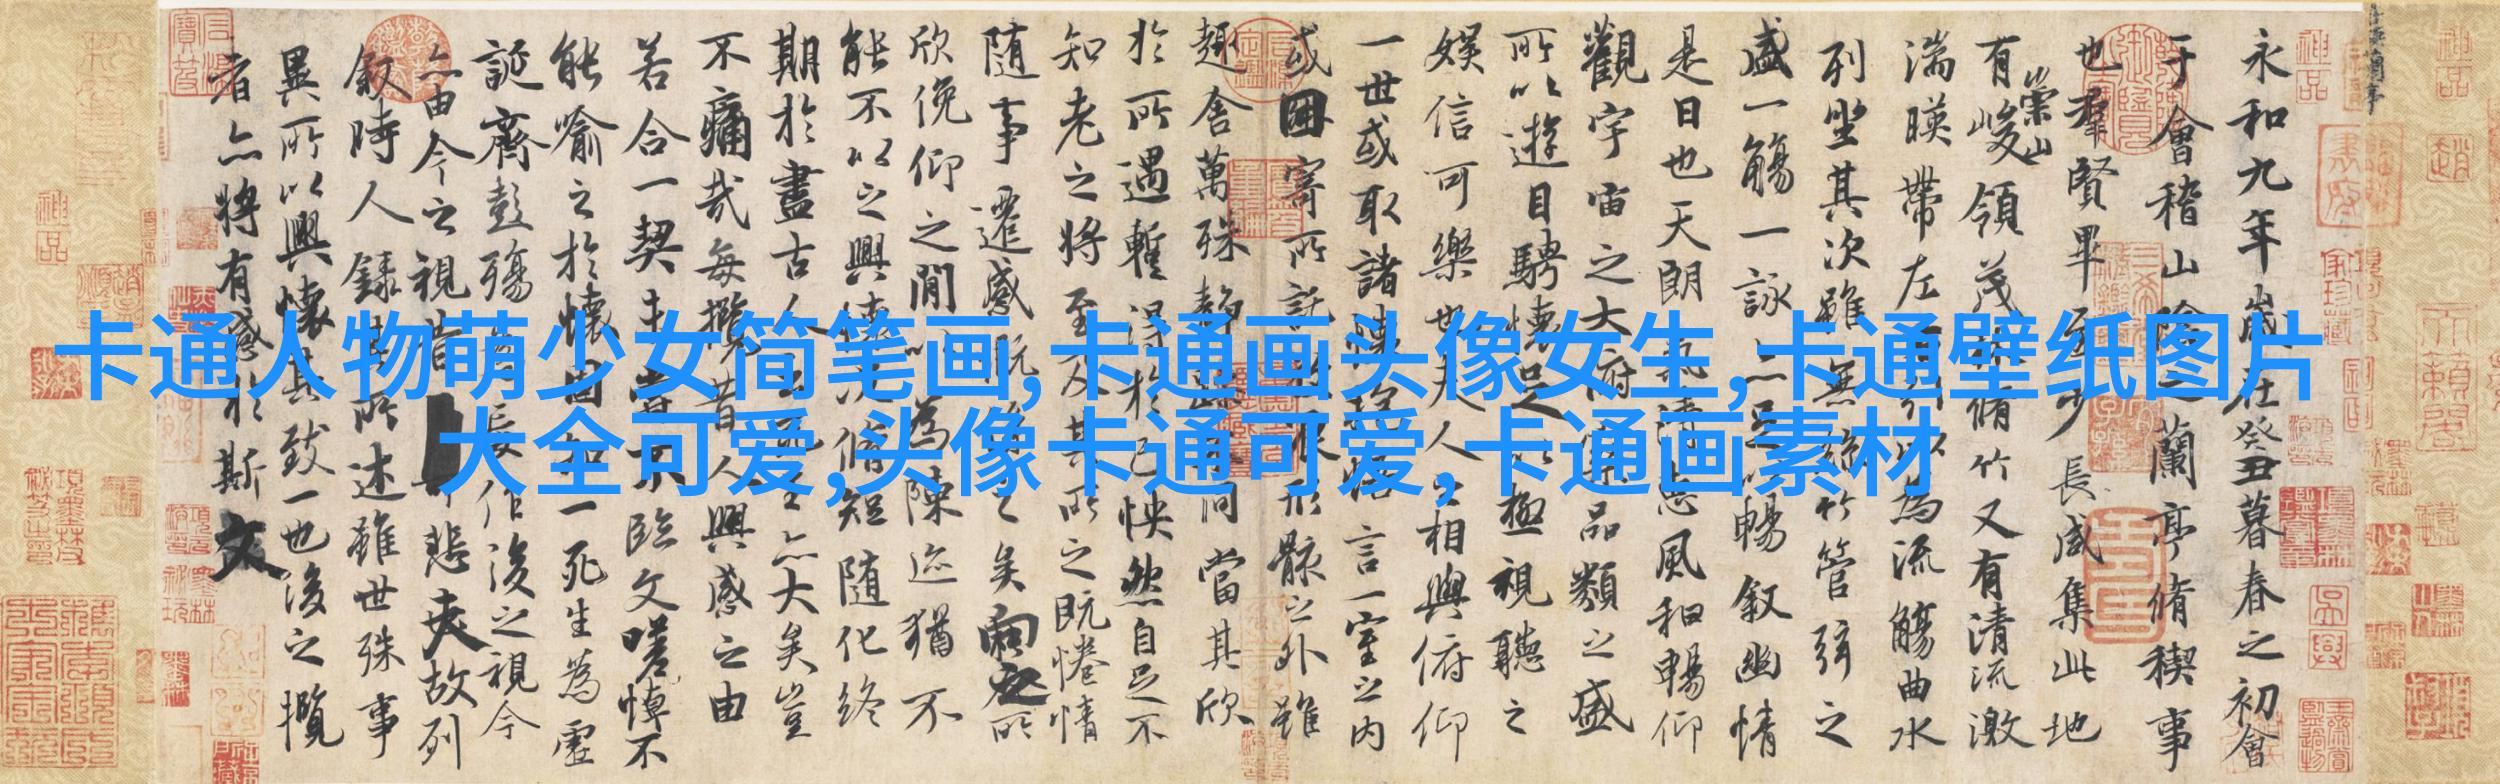 卡通人物萌少女简笔画,卡通画头像女生,卡通壁纸图片
大全可爱,头像卡通可爱,卡通画素材
永和九年歲在癸丑暮春之初會
于會稽山陰之蘭亭脩稧事
也羣賢畢至少長咸集此地
有崇山峻領茂林脩竹又有清流激
湍暎帶左右引以為流觴曲水
列坐其次雖無絲竹管弦之
盛一觴一詠亦足以暢敘幽情
是日也天朗氣清惠風和暢仰
觀宇宙之大俯察品類之盛
所以遊目騁懷足以極視聽之
娛信可樂也夫人之相與俯仰
一世或取諸懷抱悟言一室之內
或因寄所託放浪形骸之外雖
趣舍萬殊靜躁不同當其欣
於所遇暫得於己怏然自足不
知老之將至及其所之既惓情
隨事遷感慨係之矣向之所
欣俛仰之閒以為陳迹猶不
能不以之興懷況脩短隨化終
期於盡古人云死生亦大矣豈
不痛哉每攬昔人興感之由
若合一契未嘗不臨文嗟悼不
能喻之於懷固知一死生為虛
誕齊彭殤為妄作後之視今
亦由今之視昔悲夫故列
敘時人錄其所述雖世殊事
異所以興懷其致一也後之攬
者亦將有感於斯文